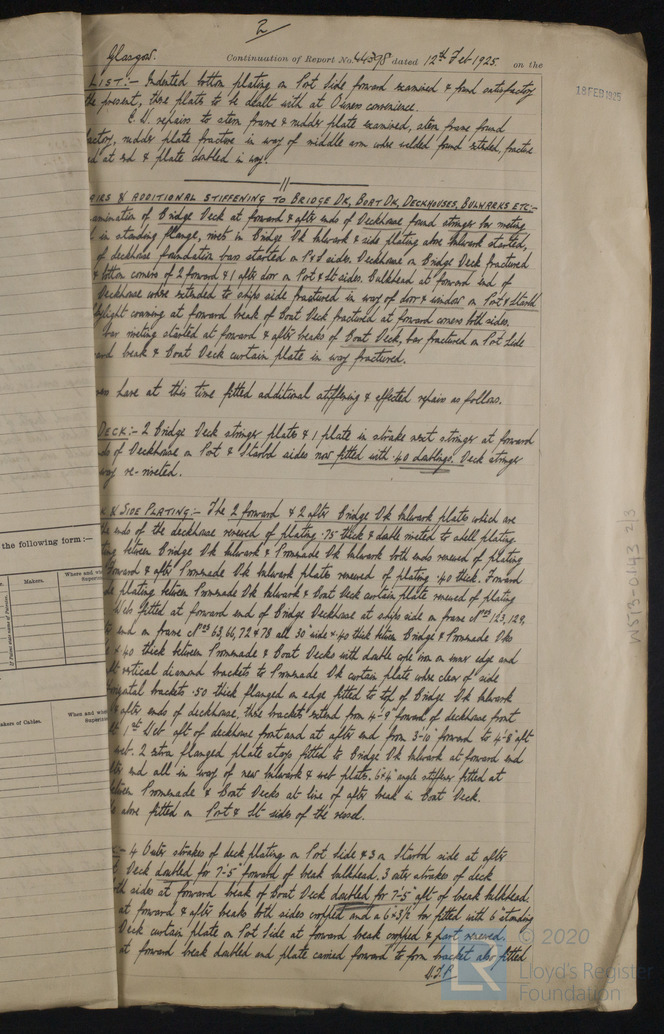 2
Glasgow. Continuation of Report No. 44398 dated 12th Feb 1925 on the
18 FEB 1925
LIST:- Indented bottom plating on Port Side forward examined & found satisfactory
the present, these plates to be dealt with at Owners convenience.
C.D. repairs to stern frame & rudder plate examined, stern frame found
factory, rudder plate fracture in way of middle arm where welded found extended, fracture
at end & plate doubled in way.
AIRS & ADDITIONAL STIFFENING TO BRIDGE DK, BOAT DK, DECKHOUSES, BULWARKS ETC:-
amination of Bridge Deck at forward & after ends of Deckhouse found stringer bar riveting
in standing flange, rivets in Bridge Dk bulwark & side plating above bulwark started,
of deckhouse foundation bars started on P & S sides. Deckhouse on Bridge Deck fractured
bottom corners of 2 forward & 1 after door on Port & St. sides. Bulkhead at forward end of
Deckhouse where extended to ships side fractured in way of door & window on Port & Starbd
light coaming at forward break of Boat Deck fractured at forward corners both sides.
bar riveting started at forward & after breaks of Boat Deck, bar fractured on Port Side
break & Boat Deck curtain plate in way fractured.
have at this time fitted additional stiffening & effected repairs as follows.
DECK:- 2 Bridge Deck stringer plates & 1 plate in strake next stringer at forward
ends of Deckhouse on Port & Starbd sides now fitted with .40 doublings. Deck stringer
way re-riveted.
& SIDE PLATING:- The 2 forward & 2 after Bridge Dk bulwark plates which are
the ends of the deckhouse renewed of plating .75 thick & double riveted to shell plating.
between Bridge Dk bulwark & Promenade Dk bulwark both ends renewed of plating
forward & after Promenade Dk bulwark plates renewed of plating .40 thick. Forward
plating between Promenade Dk bulwark & Boat Deck curtain plate renewed of plating
Webs fitted at forward end of Bridge Deckhouse at ships side on frame Nos 123, 129,
end on frame Nos 63, 66, 72 & 78 all 30" wide & .40 thick between Bridge & Promenade Dks
& .40 thick between Promenade & Boat Decks with double cope iron on inner edge and
vertical diamond brackets to Promenade Dk curtain plate where clear of side
brackets .50 thick flanged on edge fitted to top of Bridge Dk bulwark
& after ends of deckhouse, these brackets extend from 4'-9" forward of deckhouse front
1st Web aft of deckhouse front and at after end from 3'-10" forward to 4'-8" aft
web. 2 extra flanged plate stays fitted to Bridge Dk bulwark at forward end
end all in way of new bulwark & web plates. 6×4" angle stiffener fitted at
between Promenade & Boat Decks at line of after break in Boat Deck.
above fitted on Port & St. sides of the vessel.
:- 4 Outer strakes of deck plating on Port Side & 3 on Starbd side at after
Deck doubled for 7'-5" forward of break bulkhead. 3 outer strakes of deck
both sides at forward break of Boat Deck doubled for 7'-5" aft of break bulkhead.
at forward & after breaks both sides cropped and a 6×3½" bar fitted with 6" standing
Deck curtain plate on Port Side at forward break cropped & part renewed.
at forward break doubled and plate carried forward to form bracket also fitted
the following form:—
Makers.
Where and wh
Superin
Makers of Cables.
When and wh
Superin
W573-0143 2/3
© 2020
LR
Lloyd's Register
Foundation